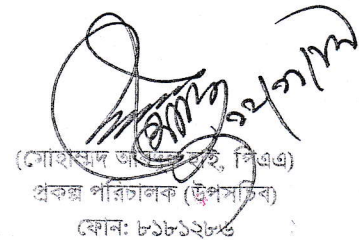 (মোহাম্মদ আবদুল হাই, পিএএ)
প্রকল্প পরিচালক (উপসচিব)
ফোন: ৮১৮১২৮৬